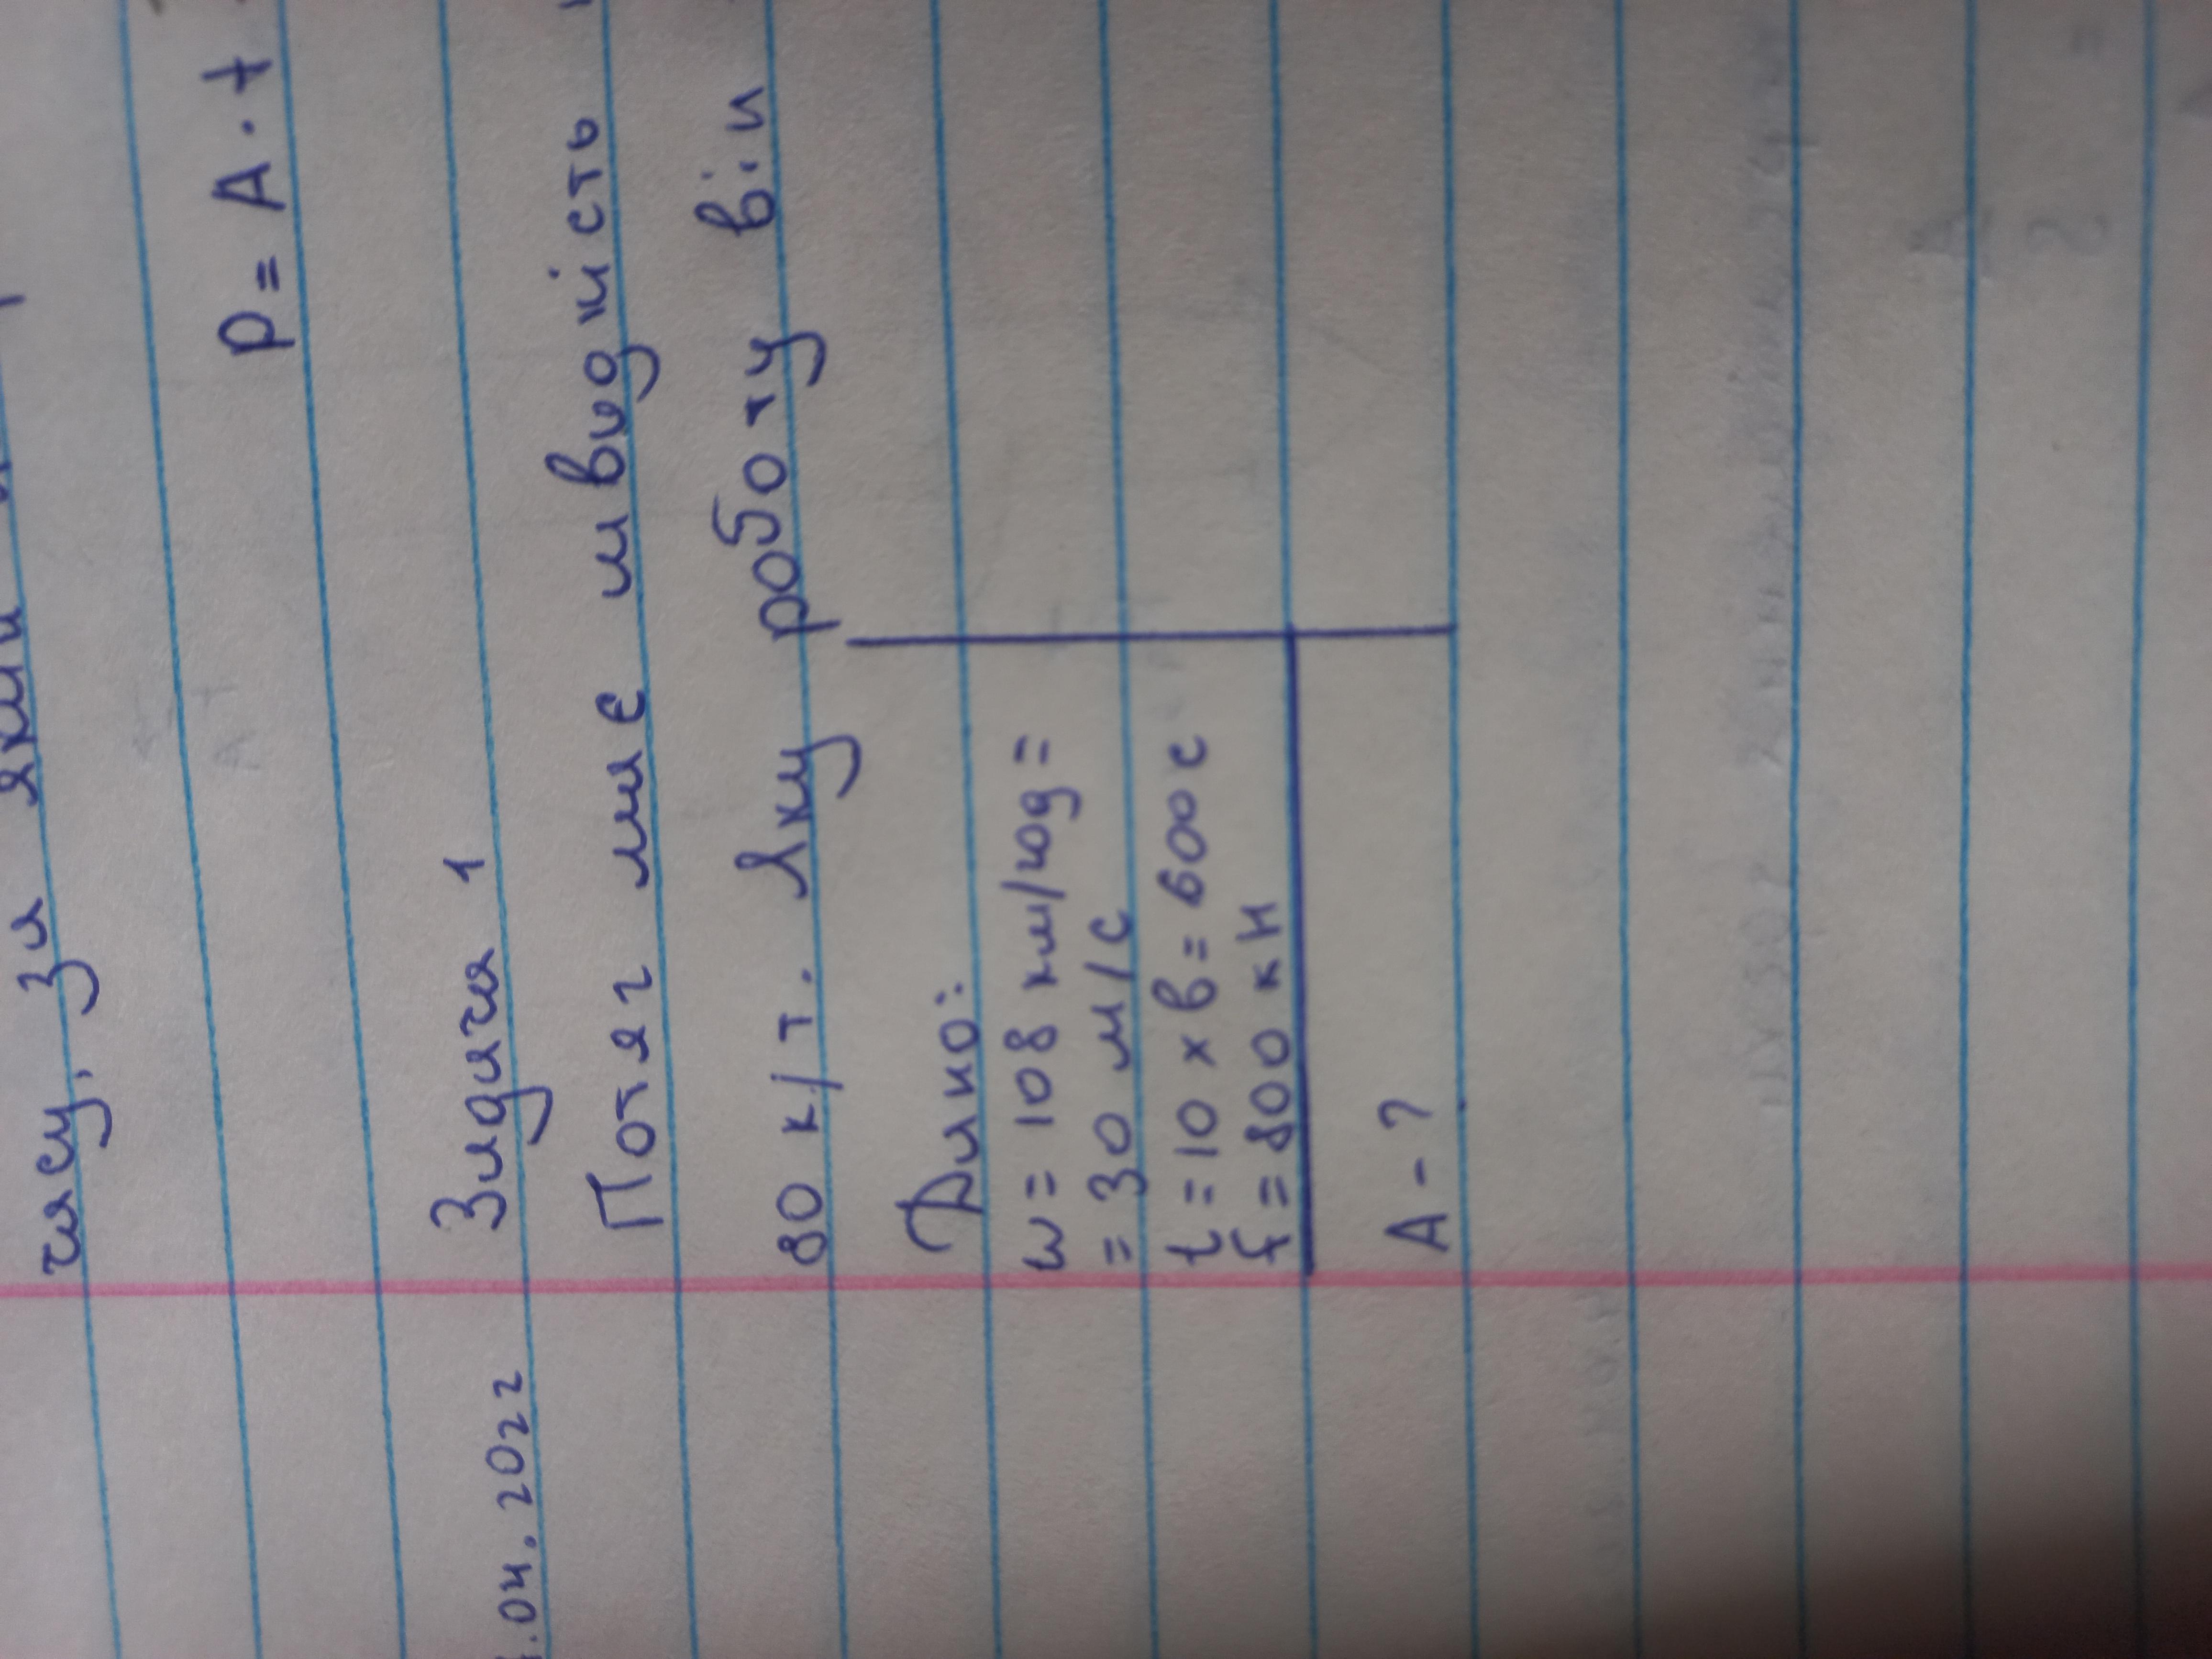 часу, за який
P = A · t
.04.2022 Задача 1
Потяг має швидкість
80 к/т. Яку роботу він
Дано:
v = 108 км/год =
= 30 м/с
t = 10 хв = 600 с
f = 800 кН
A - ?